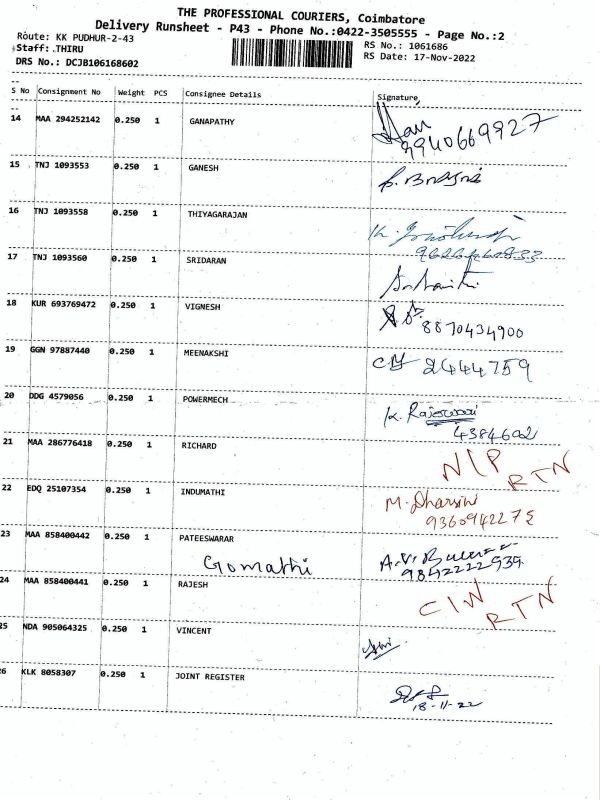 THE PROFESSIONAL COURIERS, Coimbatore
Delivery Runsheet - P43 - Phone No.:0422-3505555 - Page No.:2
Route: KK PUDHUR-2-43
RS No.: 1061686
Staff: .THIRU
RS Date: 17-Nov-2022
DRS No.: DCJB106168602
S No Consignment No Weight PCS Consignee Details Signature
14 MAA 294252142 0.250 1 GANAPATHY
9940669927
15 TNJ 1093553 0.250 1 GANESH
16 TNJ 1093558 0.250 1 THIYAGARAJAN
17 TNJ 1093560 0.250 1 SRIDARAN
18 KUR 693769472 0.250 1 VIGNESH
8870434900
19 GGN 97887440 0.250 1 MEENAKSHI
2444759
20 DDG 4579056 0.250 1 POWERMECH
K. Rajeswari
4384602
21 MAA 286776418 0.250 1 RICHARD
N/P RTN
22 EDQ 25107354 0.250 1 INDUMATHI
M. Dharsini
23 MAA 858400442 0.250 1 PATEESWARAR
Gomathi
9842222539
24 MAA 858400441 0.250 1 RAJESH
RTN
25 NDA 905064325 0.250 1 VINCENT
26 KLK 8058307 0.250 1 JOINT REGISTER
18-11-22